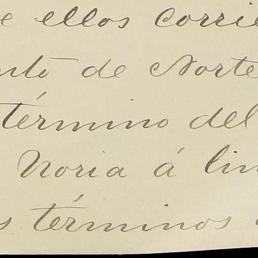 e ellos corrie
nto de Norte
término del
Noria á lin
s términos